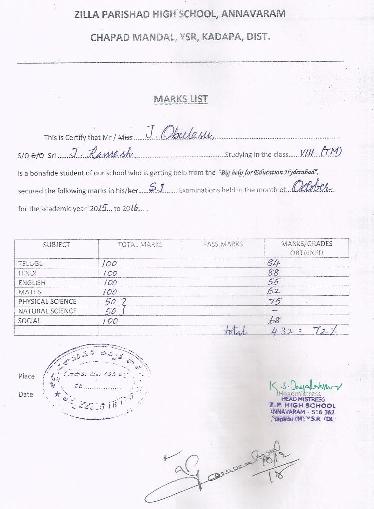 ZILLA PARISHAD HIGH SCHOOL, ANNAVARAM
CHAPAD MANDAL, YSR, KADAPA, DIST.
MARKS LIST
This is Certify that Mr / Miss J. Obulesu
S/O D/O Sri J. Ramesh Studying in the class VIII (TM)
is a bonafide student of our school who is getting help from the "Big help for Education Hyderabad",
secured the following marks in his/her S.I Examinations held in the month of October
for the academic year 2015 to 2016
SUBJECT TOTAL MARKS PASS MARKS MARKS/GRADES OBTAINED
TELUGU 100 84
HINDI 100 88
ENGLISH 100 55
MATHS 100 62
PHYSICAL SCIENCE 50 75
NATURAL SCIENCE 50 —
SOCIAL 100 68
total 432 = 72%
Place
Date
Headmistress
HEAD MISTRESS
Z.P. HIGH SCHOOL
ANNAVARAM - 516 362